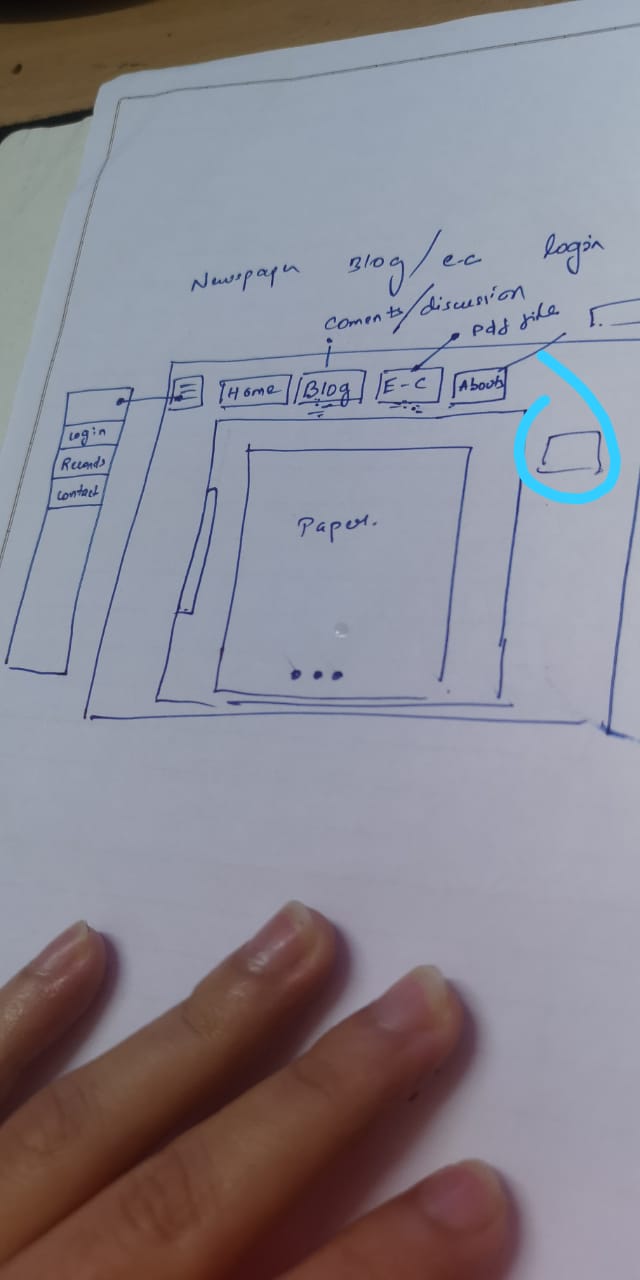 Newspaper Blog/e-c login
coments/discussion
pdf file
Home Blog E-C About
Login
Records
Contact
Paper.